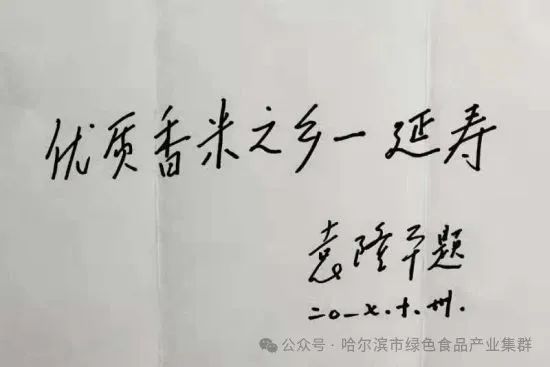 优质香米之乡一延寿
袁隆平题
二〇一七.十.卅.
公众号·哈尔滨市绿色食品产业集群